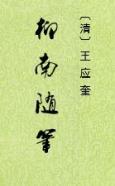 〔清〕王应奎
柳南随筆